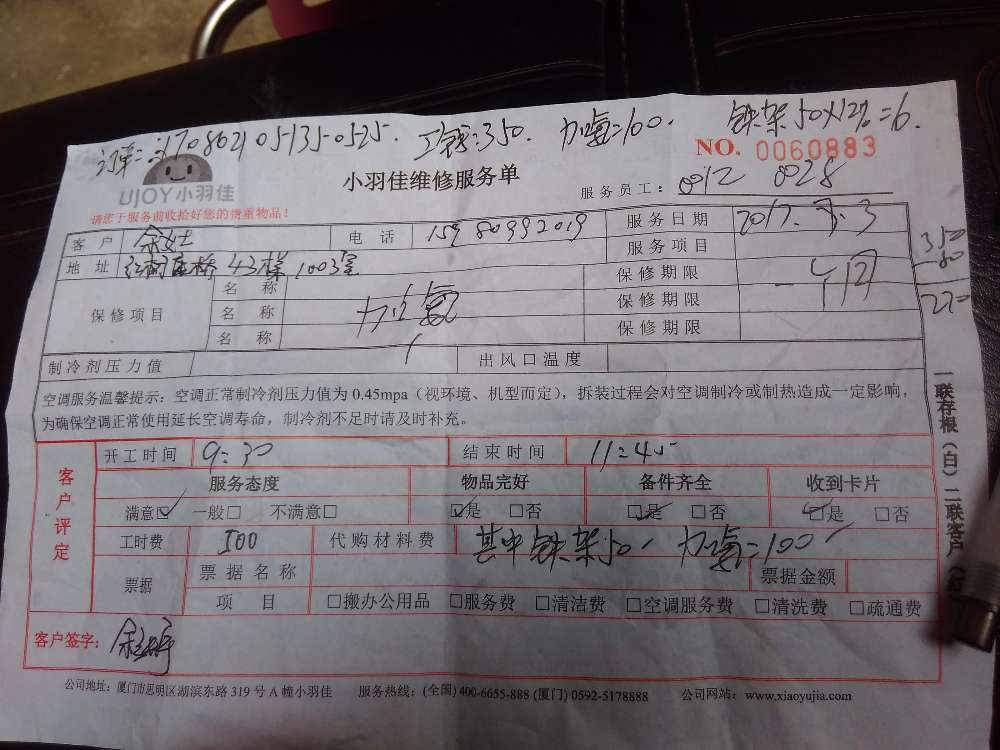 工钱:350. 加氟=100. 铁架50×12%=6.
NO. 0060883
UJOY小羽佳
小羽佳维修服务单
服务员工: 0912 0028
请您于服务前收拾好您的贵重物品!
客户 余女士 电话 15980992019 服务日期 2017.7.3
服务项目
地址 43楼1003室 保修期限 一个月
保修项目 名称 加氟 保修期限
名称 保修期限
名称
350
80
270
制冷剂压力值 出风口温度
空调服务温馨提示:空调正常制冷剂压力值为 0.45mpa(视环境、机型而定),拆装过程会对空调制冷或制热造成一定影响,
为确保空调正常使用延长空调寿命,制冷剂不足时请及时补充。
一联存根(白)二联客户(红
客户评定
开工时间 9:30 结束时间 11:45
服务态度 物品完好 备件齐全 收到卡片
满意☑ 一般□ 不满意□ ☑是 □否 ☑是 □否 ☑是 □否
工时费 500 代购材料费 其中铁架50 加氟=100
票据 票据名称 票据金额
项目 □搬办公用品 □服务费 □清洁费 □空调服务费 □清洗费 □疏通费
客户签字:
公司地址:厦门市思明区湖滨东路 319 号 A 幢小羽佳 服务热线:(全国) 400-6655-888 (厦门) 0592-5178888 公司网站:www.xiaoyujia.com